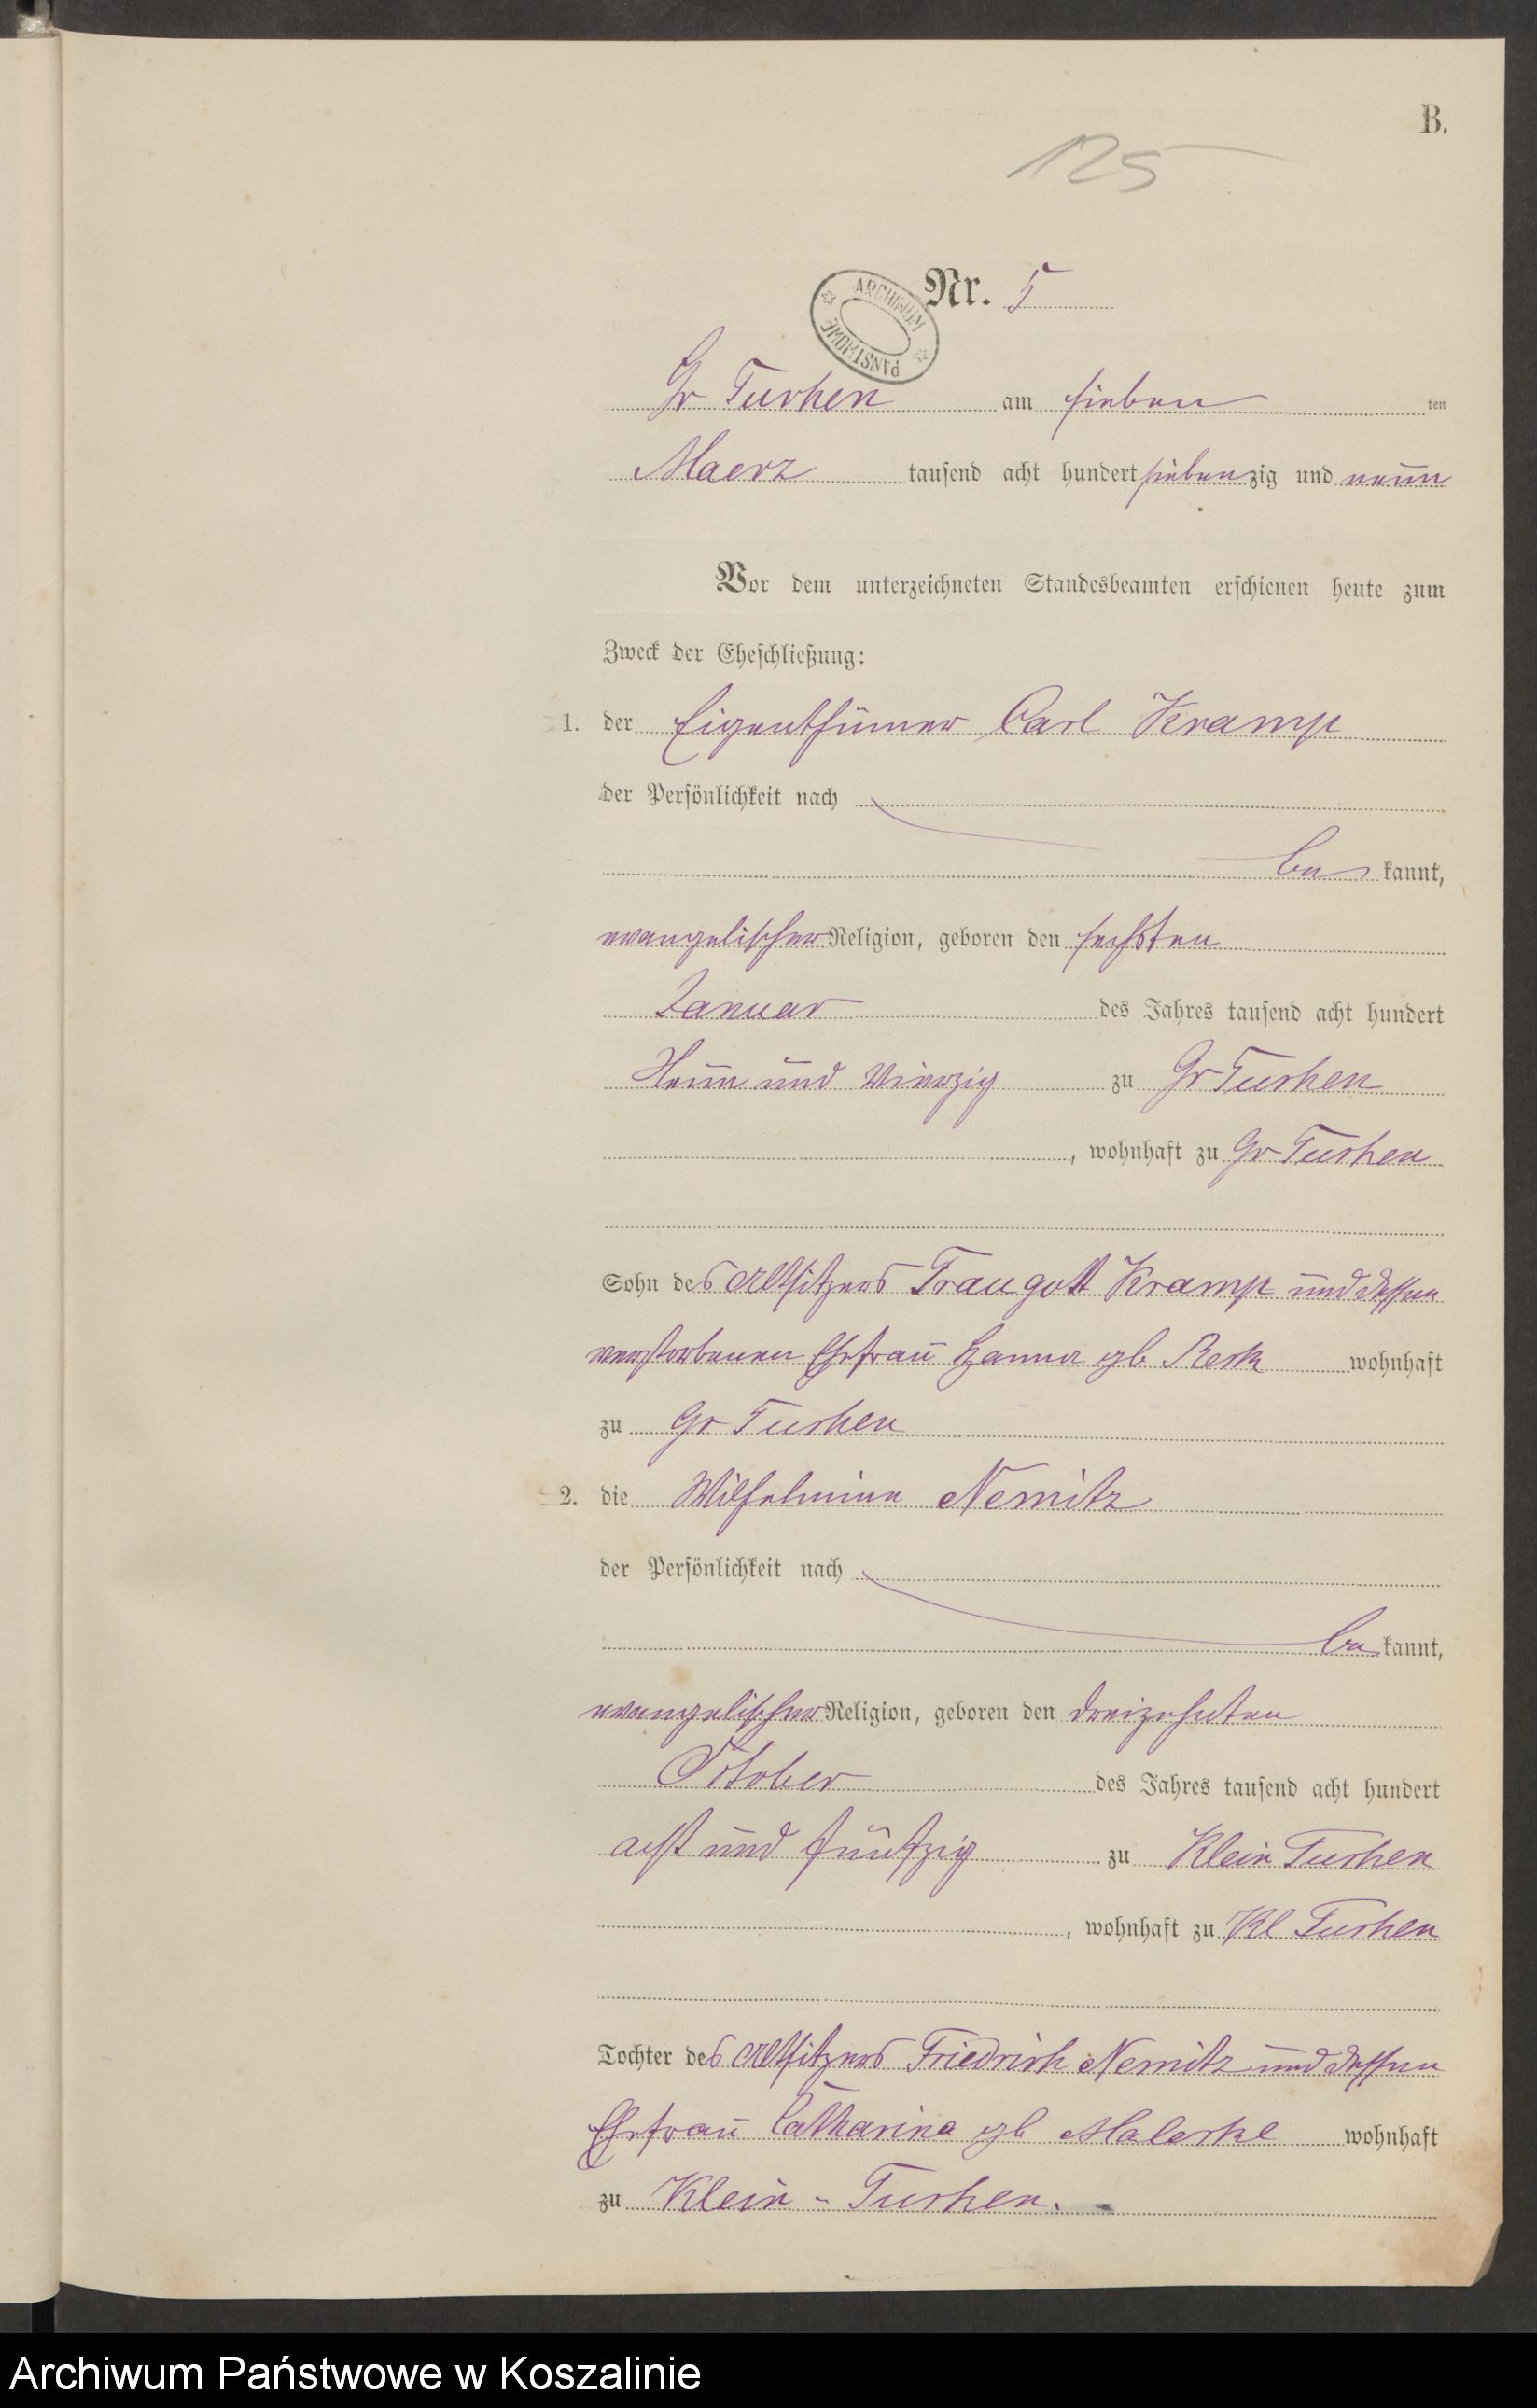 B.
125
Nr. 5
ARCHIWUM PAŃSTWOWE
Gr Tuchen am sieben ten
Maerz tausend acht hundert siebenzig und neun
Vor dem unterzeichneten Standesbeamten erschienen heute zum
Zweck der Eheschließung:
1. der Eigenthümer Carl Kramp
der Persönlichkeit nach
be kannt,
evangelischer Religion, geboren den sechsten
Januar des Jahres tausend acht hundert
Neun und Vierzig zu Gr Tuchen
, wohnhaft zu Gr Tuchen
Sohn des Altsitzers Traugott Kramp und dessen
verstorbenen Ehefrau Hanna gb wohnhaft
zu Gr Tuchen
2. die Wilhelmine Nemitz
der Persönlichkeit nach
be kannt,
evangelischer Religion, geboren den dreizehnten
October des Jahres tausend acht hundert
acht und fünfzig zu Klein Tuchen
, wohnhaft zu Kl Tuchen
Tochter des Altsitzers Friedrich Nemitz und dessen
Ehefrau Catharina gb wohnhaft
zu Klein-Tuchen.
Archiwum Państwowe w Koszalinie